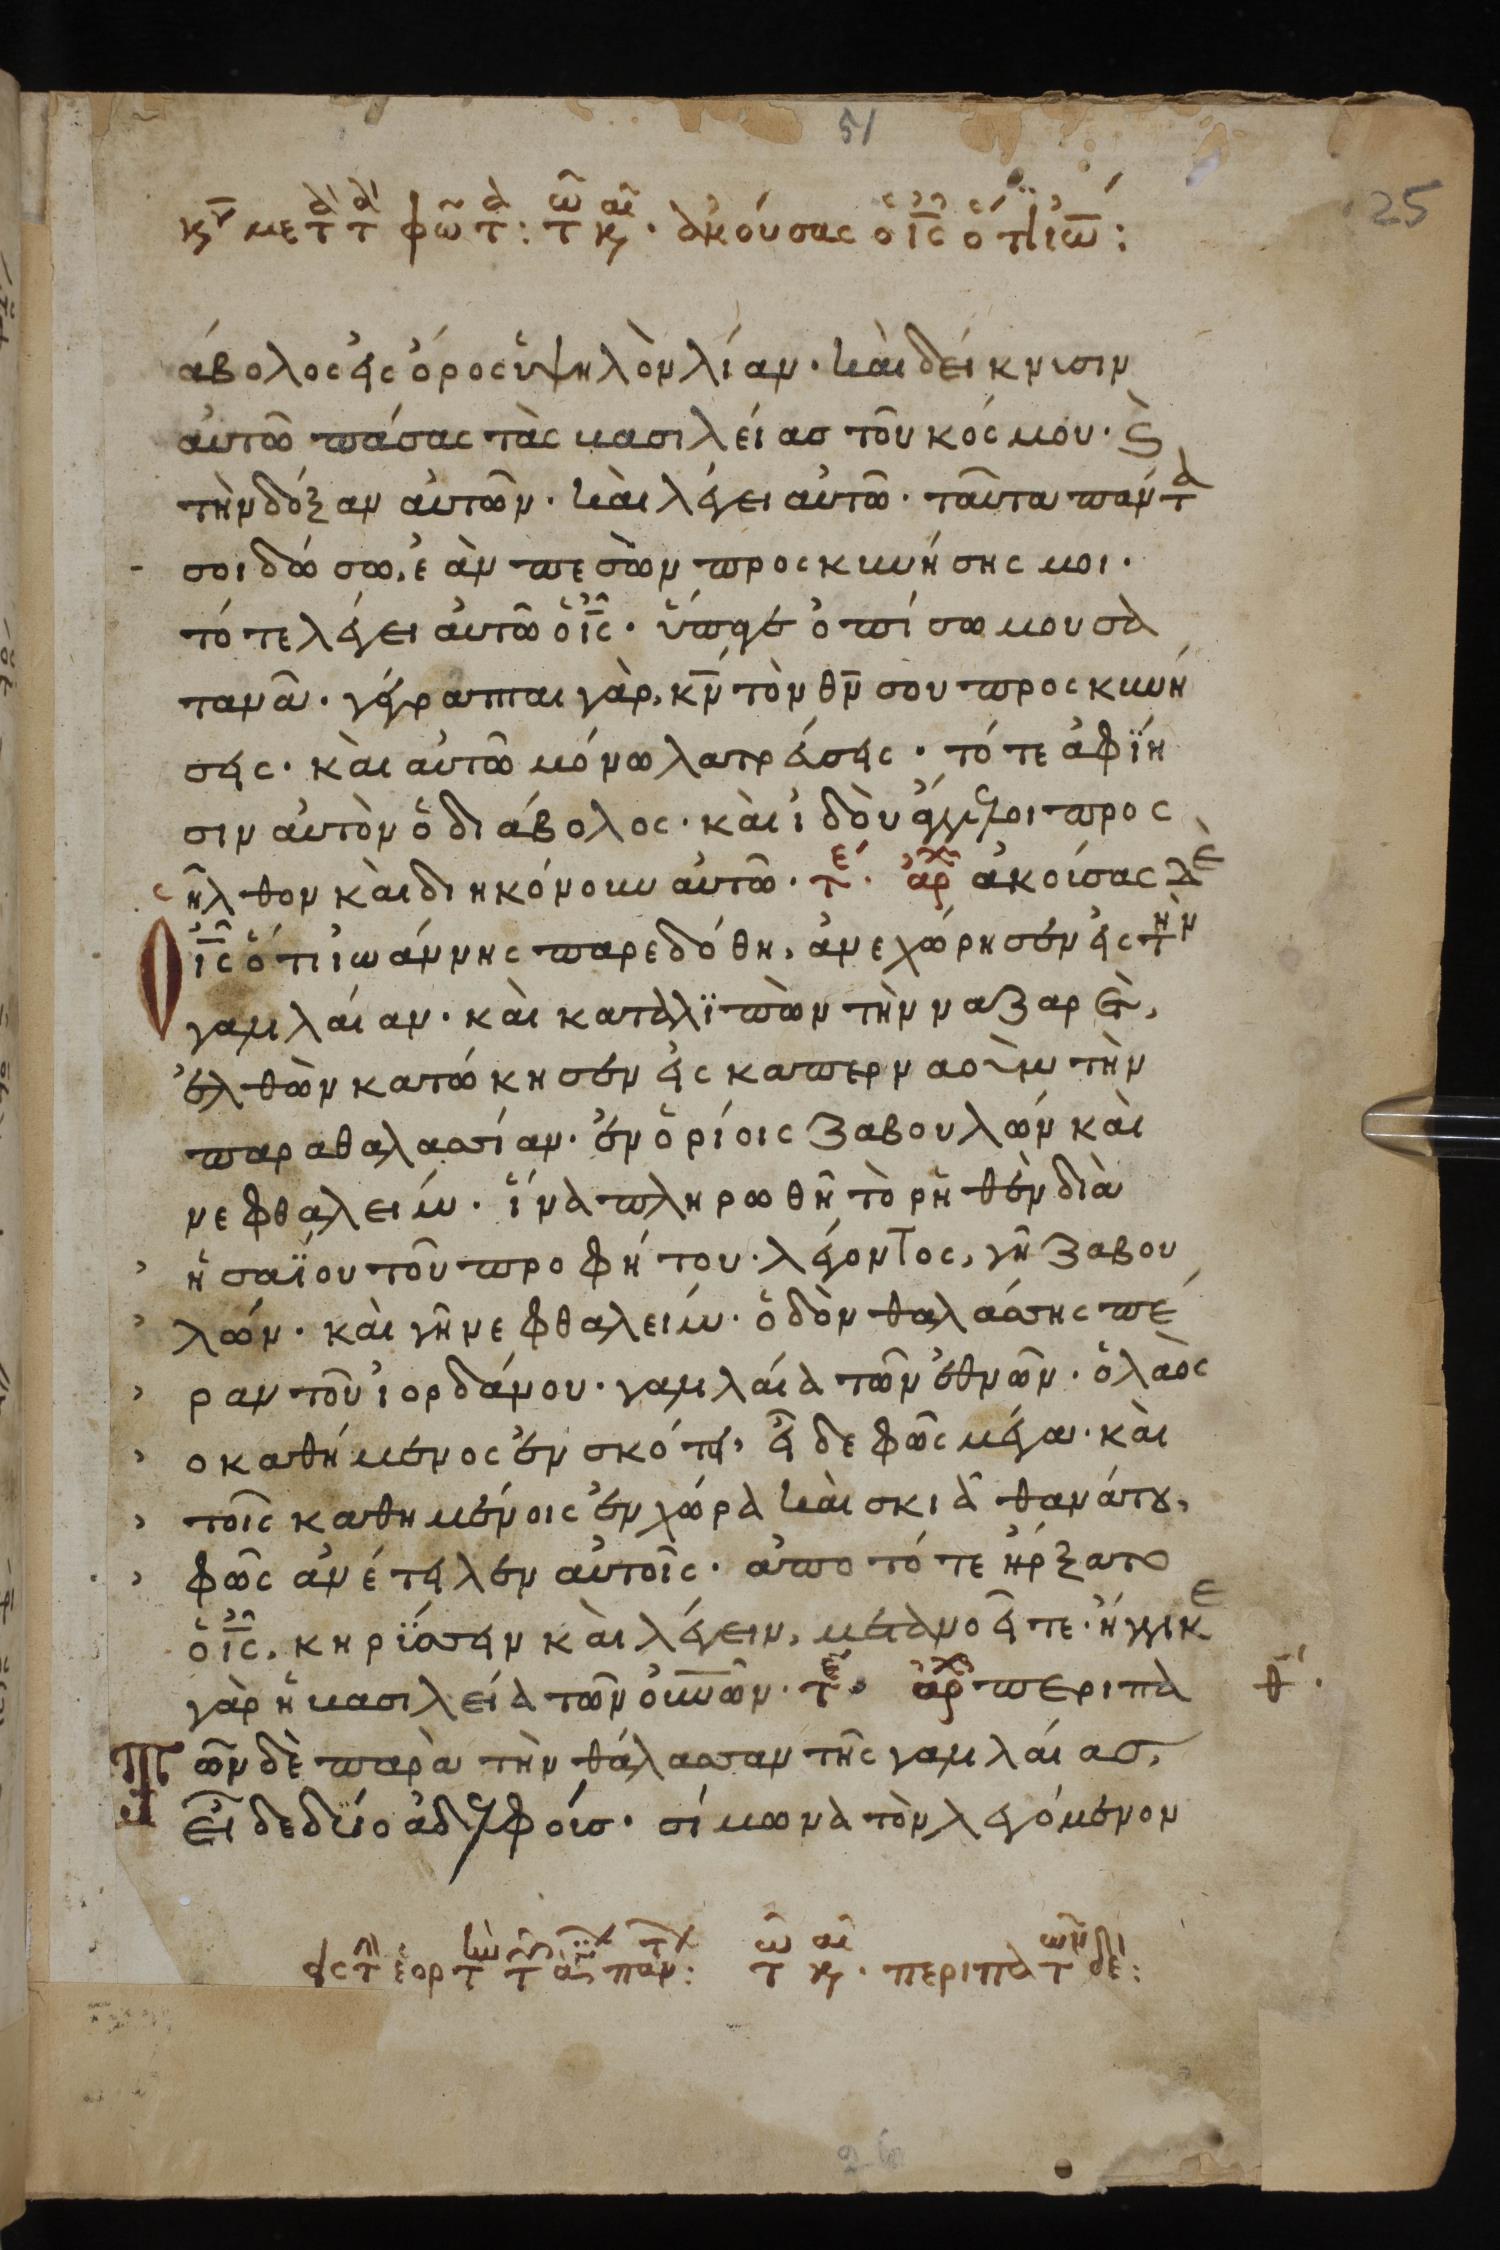 51
25
κῡ μετὰ τὰ φῶτα: τῶ και. ἀκούσας ὁ ῑς̄ ὅτι ϊω̄:
άβολος εἰς ὄρος ὑψηλὸν λίαν. καὶ δείκνυσιν
αὐτῶ πάσας τὰς βασιλείας τοῦ κόσμου. ϛ̀
τὴν δόξαν αὐτῶν. καὶ λέγει αὐτῶ. ταῦτα πάντα
σοι δώσω, ἐὰν πεσὼν προσκυνήσης μοι.
τότε λέγει αὐτῶ ὁ ῑς̄. ὕπαγε ὀπίσω μου σα
τανᾶ. γέγραπται γὰρ, κ̄ν̄ τὸν θ̄ν̄ σου προσκυνή
σεις. καὶ αὐτῶ μόνω λατρεύσεις. τότε ἀφΐη
σιν αὐτὸν ὁ διάβολος. καὶ ἰδοὺ ἄγγελοι προσ
ῆλθον καὶ διηκόνουν αὐτῶ. τε´. ἀρχ ἀκούσας δὲ
Ὁ ῑς̄ ὅτι ἰωάννης παρεδόθη, ἀνεχώρησεν εἰς τὴν
γαλιλαίαν. καὶ καταλϊπὼν τὴν ναζαρὲτ,
ἐλθὼν κατώκησεν εἰς καπερναοὺμ τὴν
παραθαλασσίαν. ἐν ὁρίοις ζαβουλὼν καὶ
νεφθαλείμ. ἵνα πληρωθῆ τὸ ρηθὲν διὰ
ἡσαΐου τοῦ προφήτου. λέγοντος, γῆ ζαβου
λών. καὶ γῆ νεφθαλείμ. ὁδὸν θαλάσσης πέ
ραν τοῦ ἰορδάνου. γαλιλαία τῶν ἐθνῶν. ὁ λαὸς
ο καθήμενος ἐν σκότει, εἶδε φῶς μέγα. καὶ
τοῖς καθημένοις ἐν χώρα καὶ σκιᾶ θανάτου,
φῶς ἀνέτειλεν αὐτοῖς. ἀπο τότε ἤρξατο
ὁ ῑς̄. κηρΰσσειν καὶ λέγειν, μετανοεῖτε. ἤγγικε
γὰρ ἡ βασιλεία τῶν οὐνῶν. τε. ἀρχ περιπα θ´.
Τῶν δὲ παρὰ τὴν θάλασσαν τῆς γαλιλαίας,
εἶδε δύο ἀδελφούς. σίμωνα τὸν λεγόμενον
εἰς τ ἑορτ τ ἁ παν: τῶ και. περιπατῶν δὲ: